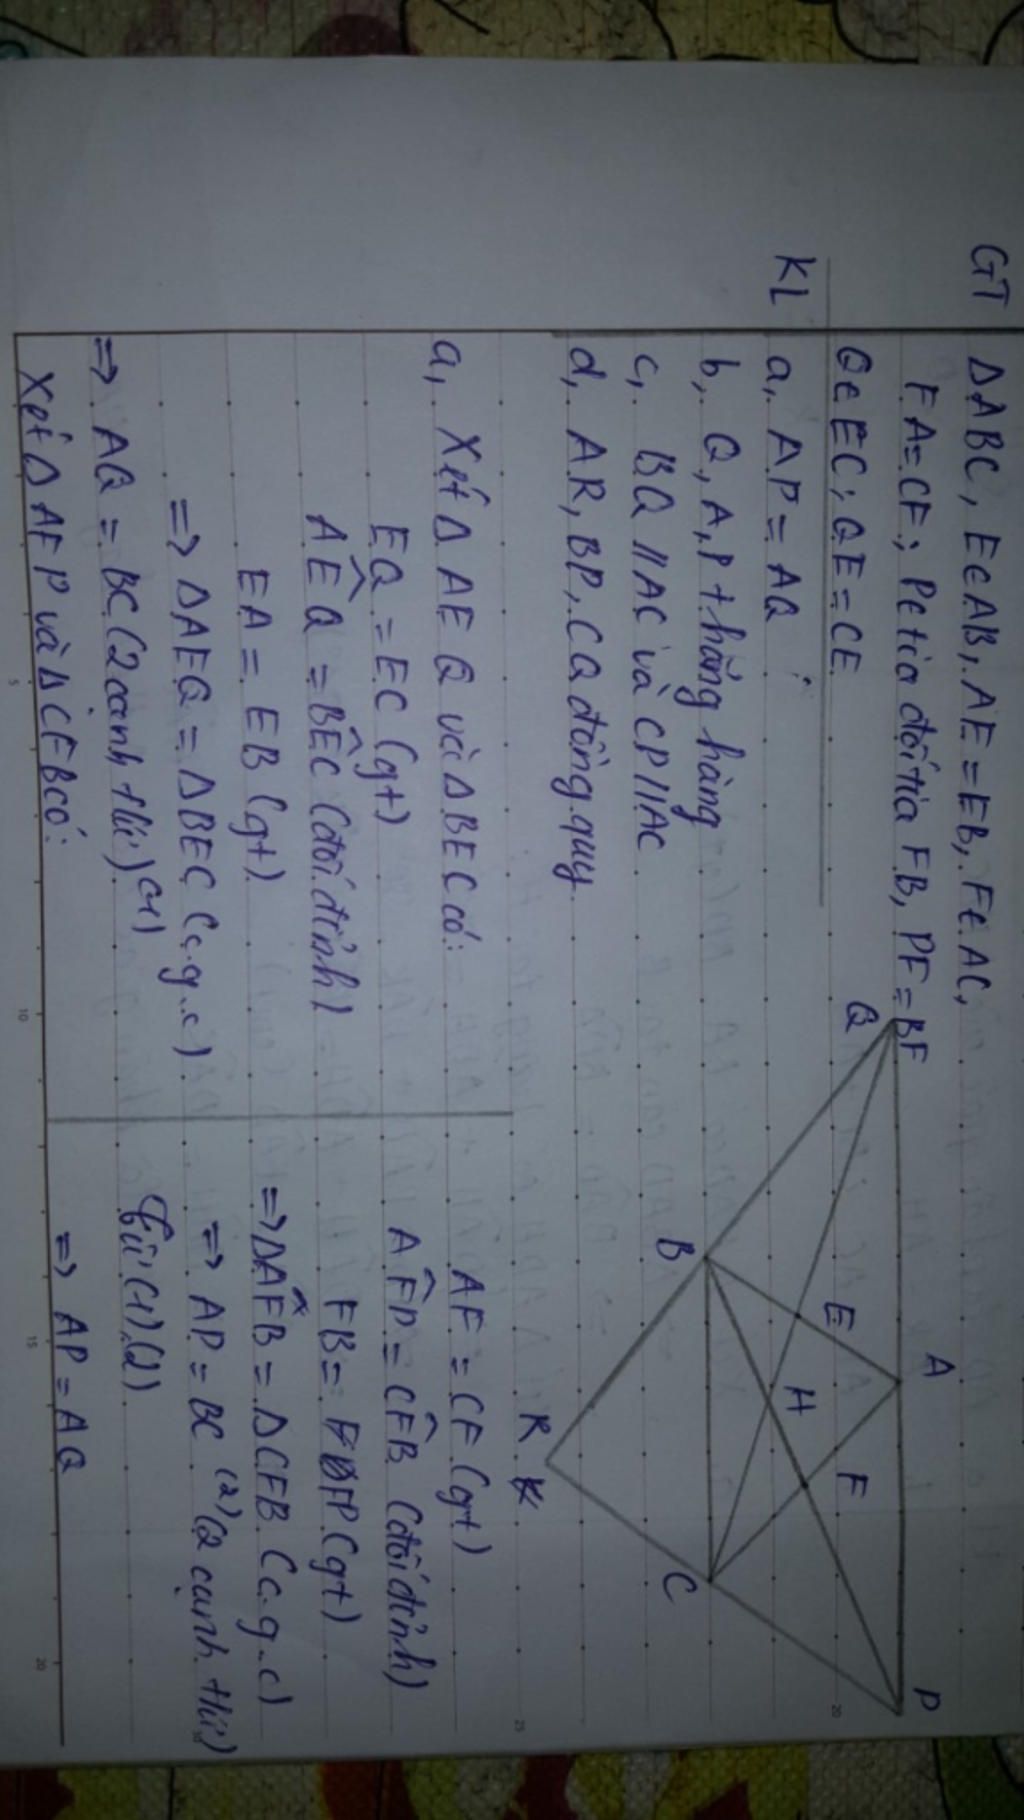 GT ΔABC, E∈AB, AE=EB, F∈AC,
FA=CF; P∈tia đối tia FB, PF=BF
Q∈EC; QE=CE
KL a, AP=AQ
b, Q,A,P thẳng hàng
c, BQ//AC và CP//AC
d, AR, BP, CQ đồng quy
Q A P
E F
H
B C
R
K
a, Xét ΔAEQ và ΔBEC có:
EQ=EC (gt)
AÊQ=BÊC (đối đỉnh)
EA=EB (gt)
=> ΔAEQ=ΔBEC (c.g.c)
=> AQ=BC (2 cạnh t/ứ) (1)
Xét ΔAFP và ΔCFB có:
AF=CF (gt)
AF̂P=CF̂B (đối đỉnh)
FB=FP (gt)
=> ΔAFB=ΔCFB (c.g.c)
=> AP=BC (2) (2 cạnh t/ứ)
Từ (1),(2)
=> AP=AQ
5
10
15
20
25
20